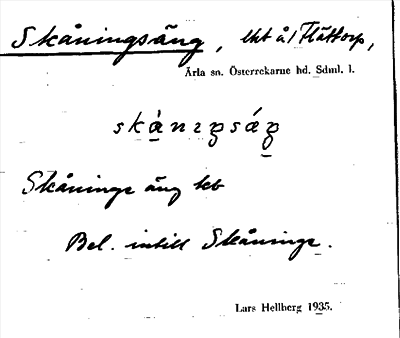 Skåningsäng, lht å/ Flättorp,
Ärla sn. Österrekarne hd. Sdml. l.
Skånings äng kb
Bel. intill Skåninge.
Lars Hellberg 1935.